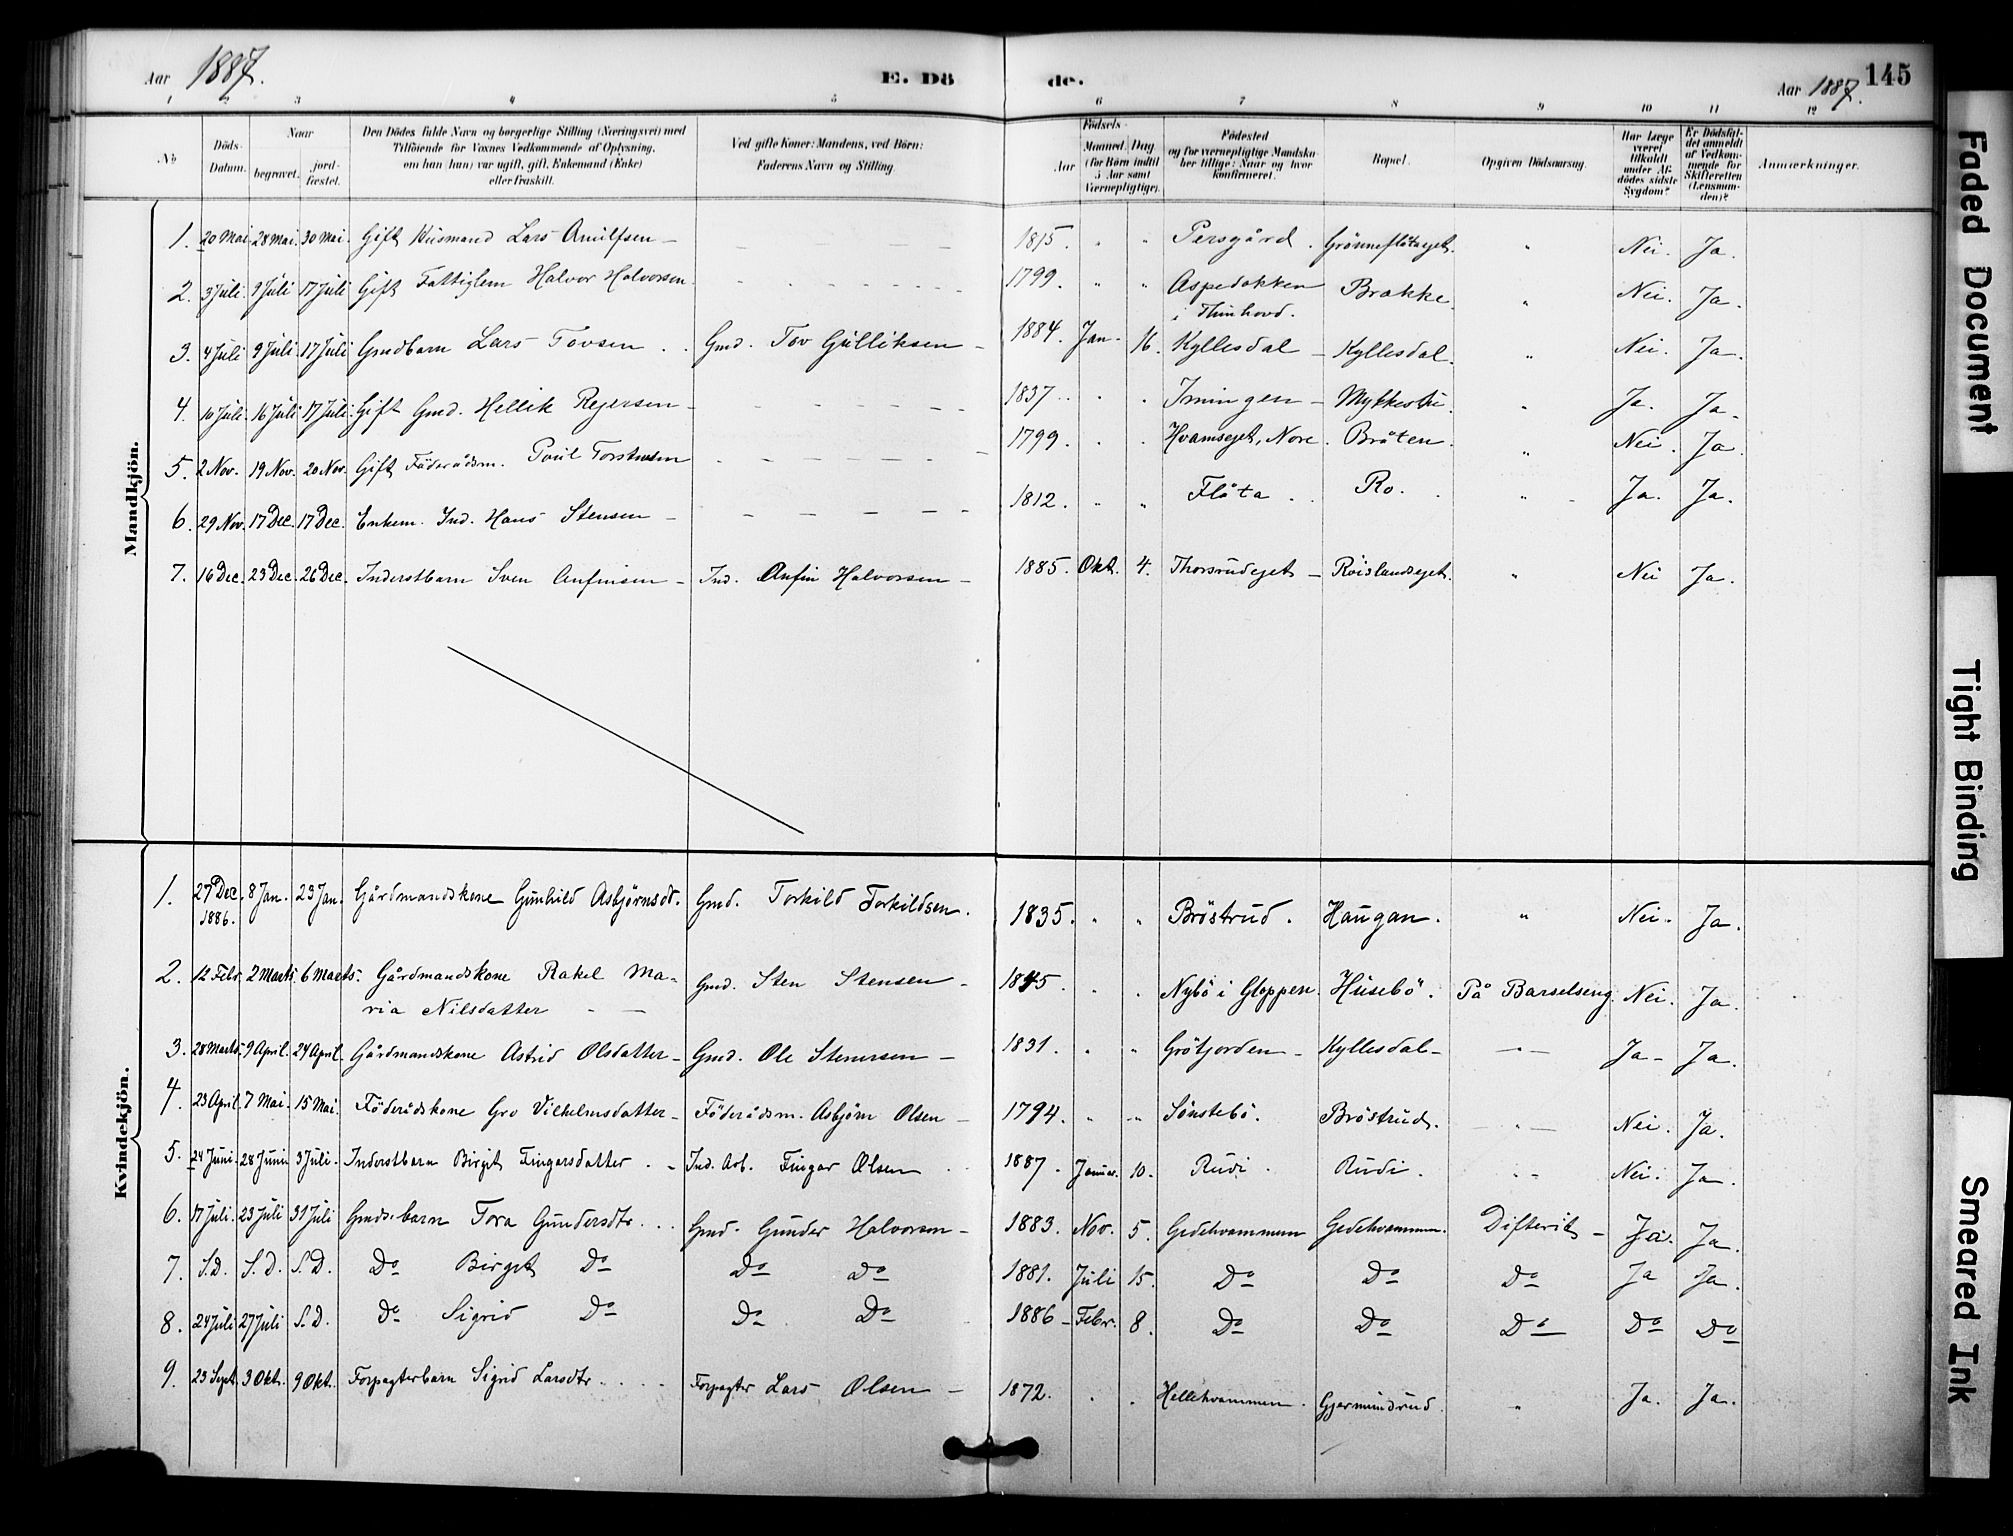 Aar 1887. E. Dö de. Aar 1887. 145
1 2 3 4 5 6 7 8 9 10 11 12
No
Döds-
Datum.
Naar
begravet.
jord-
fæstet.
Den Dödes fulde Navn og borgerlige Stilling (Næringsvei) med
Tilföiende for Voxnes Vedkommende af Oplysning,
om han (hun) var ugift, gift, Enkemand (Enke)
eller fraskilt.
Ved gifte Koner: Mandens, ved Börn:
Faderens Navn og Stilling.
Födsels-
Aar
Maaned. Dag
(for Börn indtil
5 Aar samt
Værnepligtige).
Födested
og for værnepligtige Mandskaber tillige: Naar og hvor
konfirmeret.
Bopæl.
Opgiven Dödsaarsag.
Har Læge
været
tilkaldt
under Af-
dödes sidste
Sygdom?
Er Dödsfal-
det anmeldt
af Vedkom-
mende for
Skifteretten
(Lensman-
den)?
Anmærkninger.
Mandkjön.
1. 20 Mai 28 Mai. 30 Mai. Gift Husmand Lars Arnulfsen — 1815. " " Persgård. Grönneflåtaeget. " Nei. Ja.
2. 3 Juli 9 Juli 17 Juli Gift Fattiglem Halvor Halvorsen 1799. " " Aspedokken Brakke " Nei. Ja.
i Thunhovd.
3. 4 Juli 9 Juli 17 Juli Gmdbarn Lars Tovsen . . Gmd. Tov Gulliksen — 1884. Jan. 16. Kyllesdal — Kyllesdal. " Nei. Ja.
4. 10 Juli 16 Juli 17 Juli Gift Gmd. Hellik Rejersen — 1837. " " Imingen — Mykkestu. " Ja. Ja.
5. 2 Nov. 19 Nov. 20 Nov. Gift Föderådsm. Poul Torstensen 1799. " " Hvamseget, Nore. Bråten. " Nei. Ja.
6. 29 Nov. 17 Dec. 17 Dec. Enkem. Ind. Hans Stensen — 1812. " " Flåta. Ro. " Ja. Ja.
7. 16 Dec. 23 Dec. 26 Dec. Inderstbarn Sven Anfinsen — Ind. Anfin Halvorsen — 1885. Okt. 4. Thorsrudeget — Röislandseget. " Nei Ja.
Kvindekjön.
1. 27 Dec. 8 Jan. 23 Jan. Gårdmandskone Gunhild Asbjörnsdt. Gmd. Torkild Torkildsen. 1835. " " Bröstrud. Haugan. " Nei. Ja.
1886.
2. 12 Febr. 2 Marts 6 Marts. Gårdmandskone Rakel Ma- Gmd. Sten Stensen — 1845. " " Nybö i Gloppen. Husebö. På Barselseng. Nei. Ja.
ria Nilsdatter
3. 28 Marts. 9 April. 24 April. Gårdmandskone Astrid Olsdatter — Gmd. Ole Stenersen — 1831. " " Grötjorden — Kyllesdal — " Ja. Ja.
4. 23 April. 7 Mai. 15 Mai. Föderådskone Gro Vilhelmsdatter — Föderådsm. Asbjörn Olsen — 1794. " " Sönstebö. Bröstrud. " Nei. Ja.
5. 24 Juni. 28 Juni 3 Juli. Inderstbarn Birgit Fingarsdatter . — Ind. Arb. Fingar Olsen 1887. Januar. 10. Rudi. Rudi. " Nei. Ja.
6. 17 Juli. 23 Juli 31 Juli Gmds. barn Tora Gundersdtr. Gmd. Gunder Halvorsen — 1883. Nov. 5. Gedehvammen Gedehvammen. Difterit — Ja. Ja.
7. S.D. S.D. S.D. Do Birget Do Do Do 1881. Juli 15. Do Do Do Ja Ja.
8. 24 Juli 27 Juli S.D. Do Sigrid Do Do Do 1886 — Febr. 8. Do Do Do Do Do
9. 23 Sept. 3 Okt. 9 Okt. Forpagterbarn Sigrid Larsdtr. Forpagter Lars Olsen — 1872. " " Hellehvammen. Gjermundrud. " Ja. Ja.
Faded Document
Tight Binding
Smeared Ink